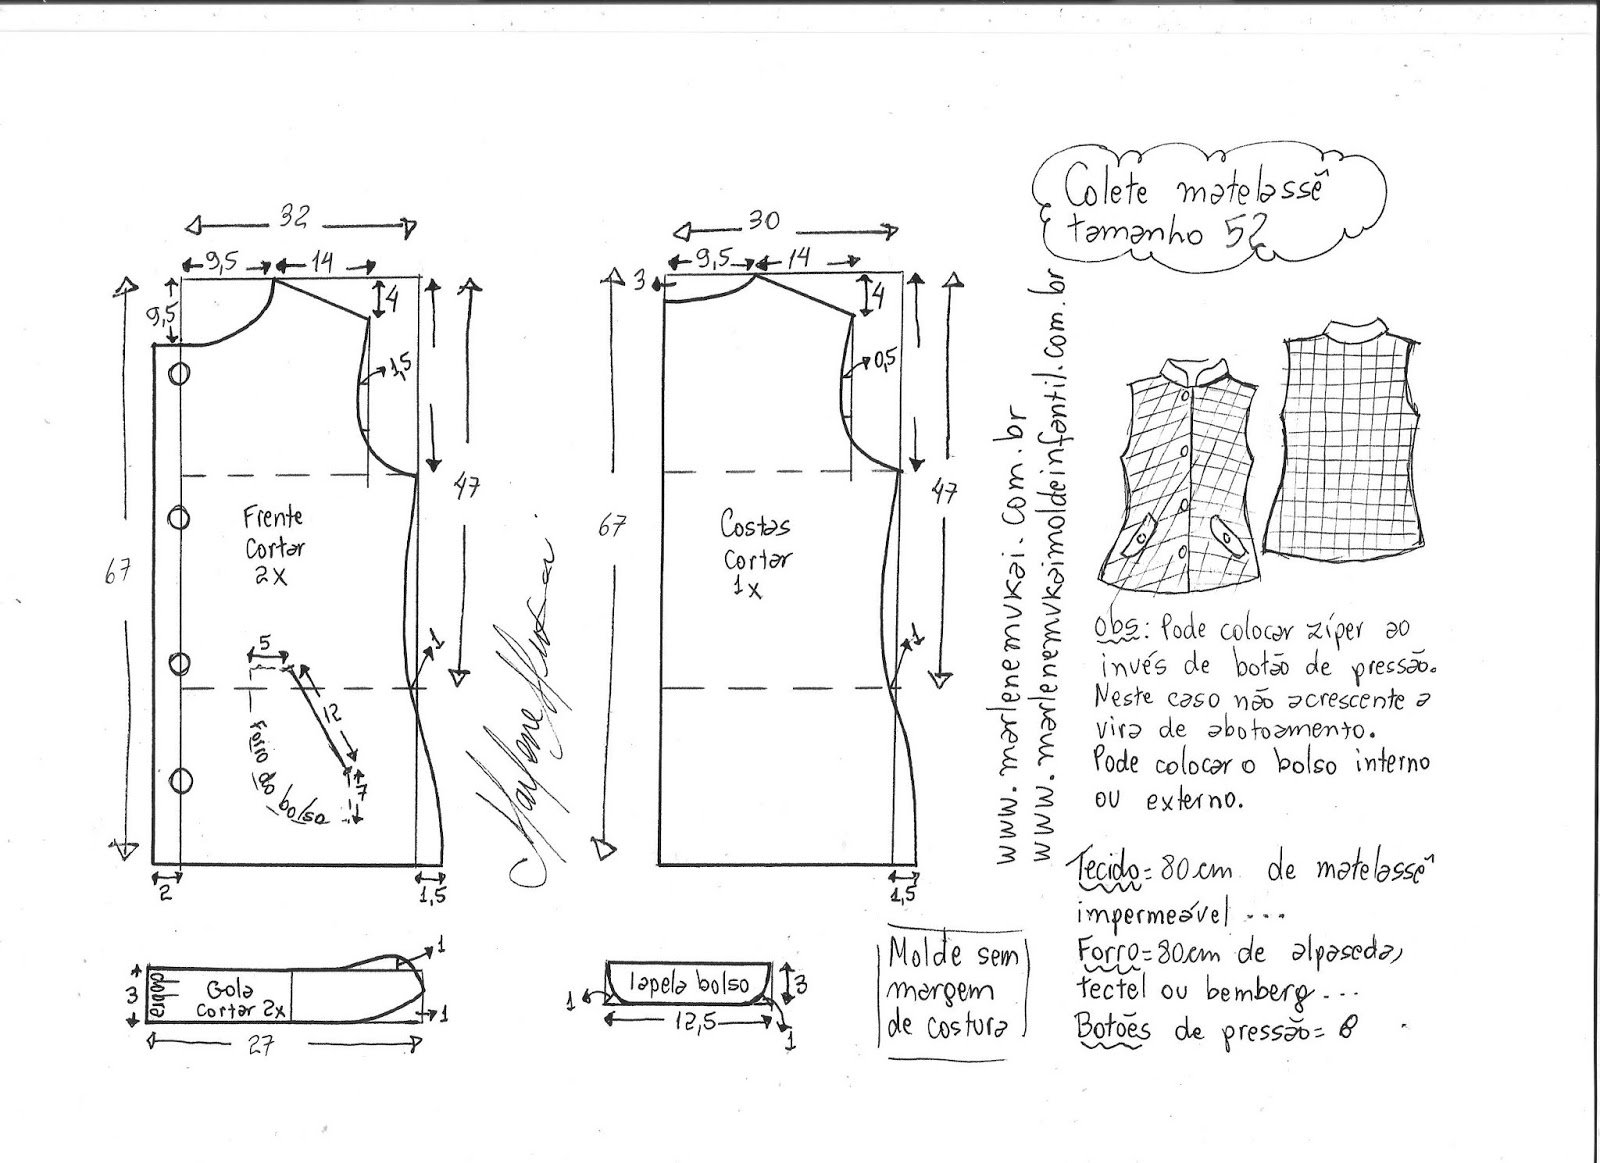 Colete matelassê
tamanho 52
32
9,5
14
4
9,5
1,5
47
67
Frente
Cortar
2x
5
12
7
Forro do bolso
1
2
1,5
30
9,5
14
3
4
0,5
47
67
Costas
Cortar
1x
1
1,5
Marlene Mukai
www.marlenemukai.com.br
www.marlenemukaimoldeinfantil.com.br
obs: Pode colocar zíper ao
invés de botão de pressão.
Neste caso não acrescente a
vira de abotoamento.
Pode colocar o bolso interno
ou externo.
Tecido = 80cm de matelassê
impermeável ...
Forro = 80cm de alpaseda,
tectel ou bemberg ...
Botões de pressão =
3
dobra
Gola
cortar 2x
1
1
27
lapela bolso
1
3
12,5
1
Molde sem
margem
de costura